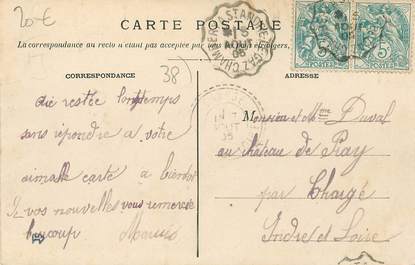 20€
CARTE POSTALE
La correspondance au recto n'étant pas acceptée par tous les pays étrangers,
CORRESPONDANCE
38)
ADRESSE
aie restée longtemps
sans répondre a votre
aimable carte a bientôt
de vos nouvelles vous remercie
beaucoup
Monsieur et Mme Duval
au château de Pray
par Chargé
Indre et Loire
POSTES
5c
POSTES
5c